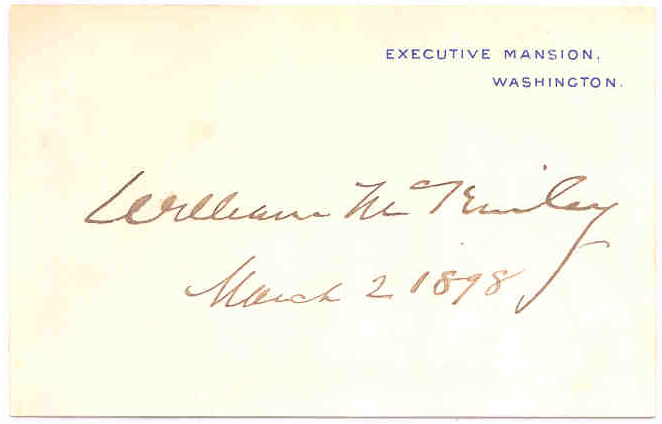 EXECUTIVE MANSION,
WASHINGTON.
William McKinley
March 2 1898